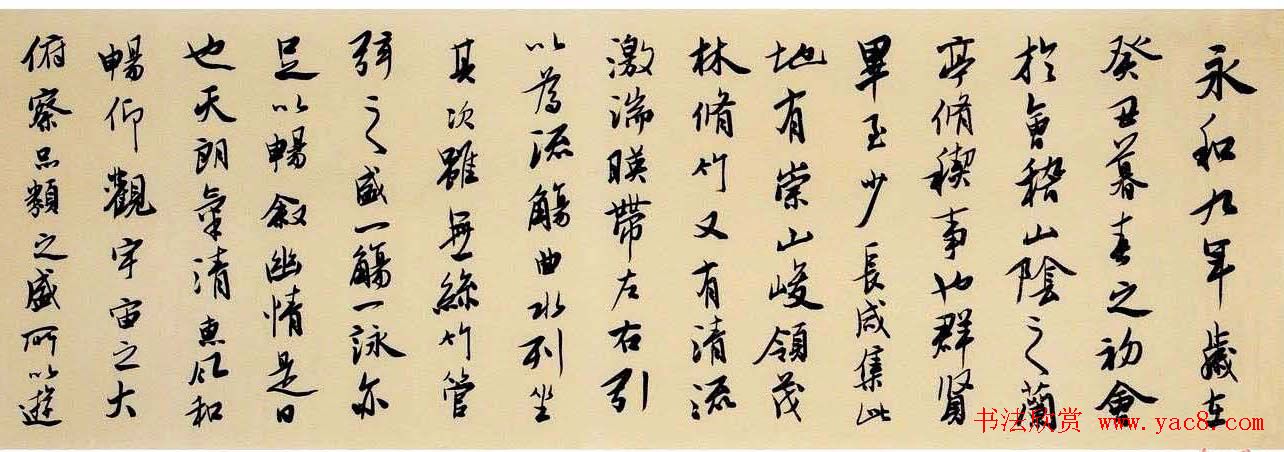 永和九年歲在
癸丑暮春之初會
於會稽山陰之蘭
亭脩稧事也群賢
畢至少長咸集此
地有崇山峻領茂
林脩竹又有清流
激湍暎帶左右引
以為流觴曲水列坐
其次雖無絲竹管
弦之盛一觴一詠亦
足以暢敘幽情是日
也天朗氣清惠風和
暢仰觀宇宙之大
俯察品類之盛所以遊
书法欣赏 www.yac8.com